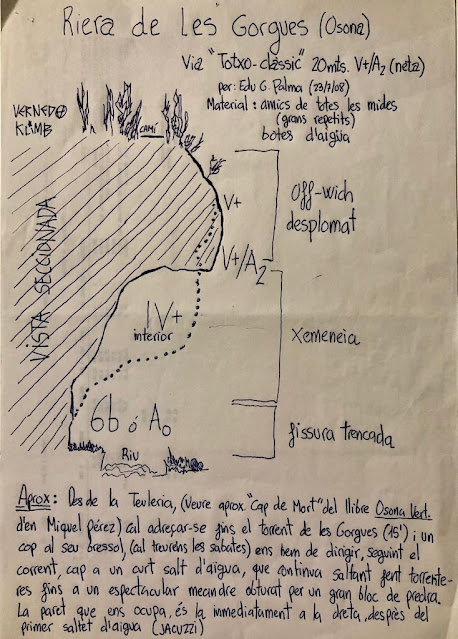 Riera de Les Gorgues (Osona)
Via "Totxo-clàssic" 20mts. V+/A2 (neta)
per: Edu G. Palma (23/7/08)
Material: amics de totes les mides
(grans repetits)
botes d'aigua
VERNEDA
KLIMB
CAMÍ
VISTA SECCIONADA
V+
Off-wich
desplomat
V+/A2
IV+
interior
Xemeneia
6b ó A0
fissura trencada
Riu
Aprox: Des de la Teuleria, (Veure aprox. "Cap de Mort" del llibre Osona Vert.
d'en Miquel Pérez) cal adreçar-se fins el torrent de les Gorgues (15') i un
cop al seu bressol, (cal treure'ns les sabates) ens hem de dirigir, seguint el
corrent, cap a un curt salt d'aigua, que continua saltant fent torrente-
res fins a un espectacular meandre obturat per un gran bloc de pedra.
La paret que ens ocupa, és la immediatament a la dreta, després del
primer saltet d'aigua (JACUZZI)